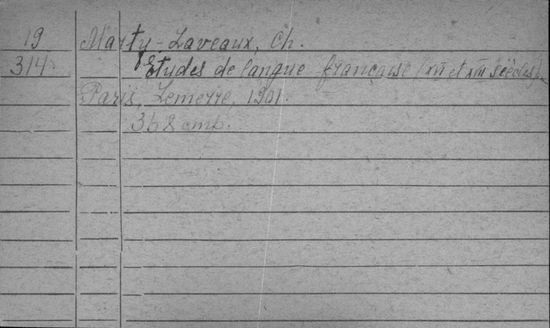 19 Marty-Laveaux, Ch.
314 Études de langue française (XVI et XVII siècles).
Paris, Lemerre, 1901.
368 стр.